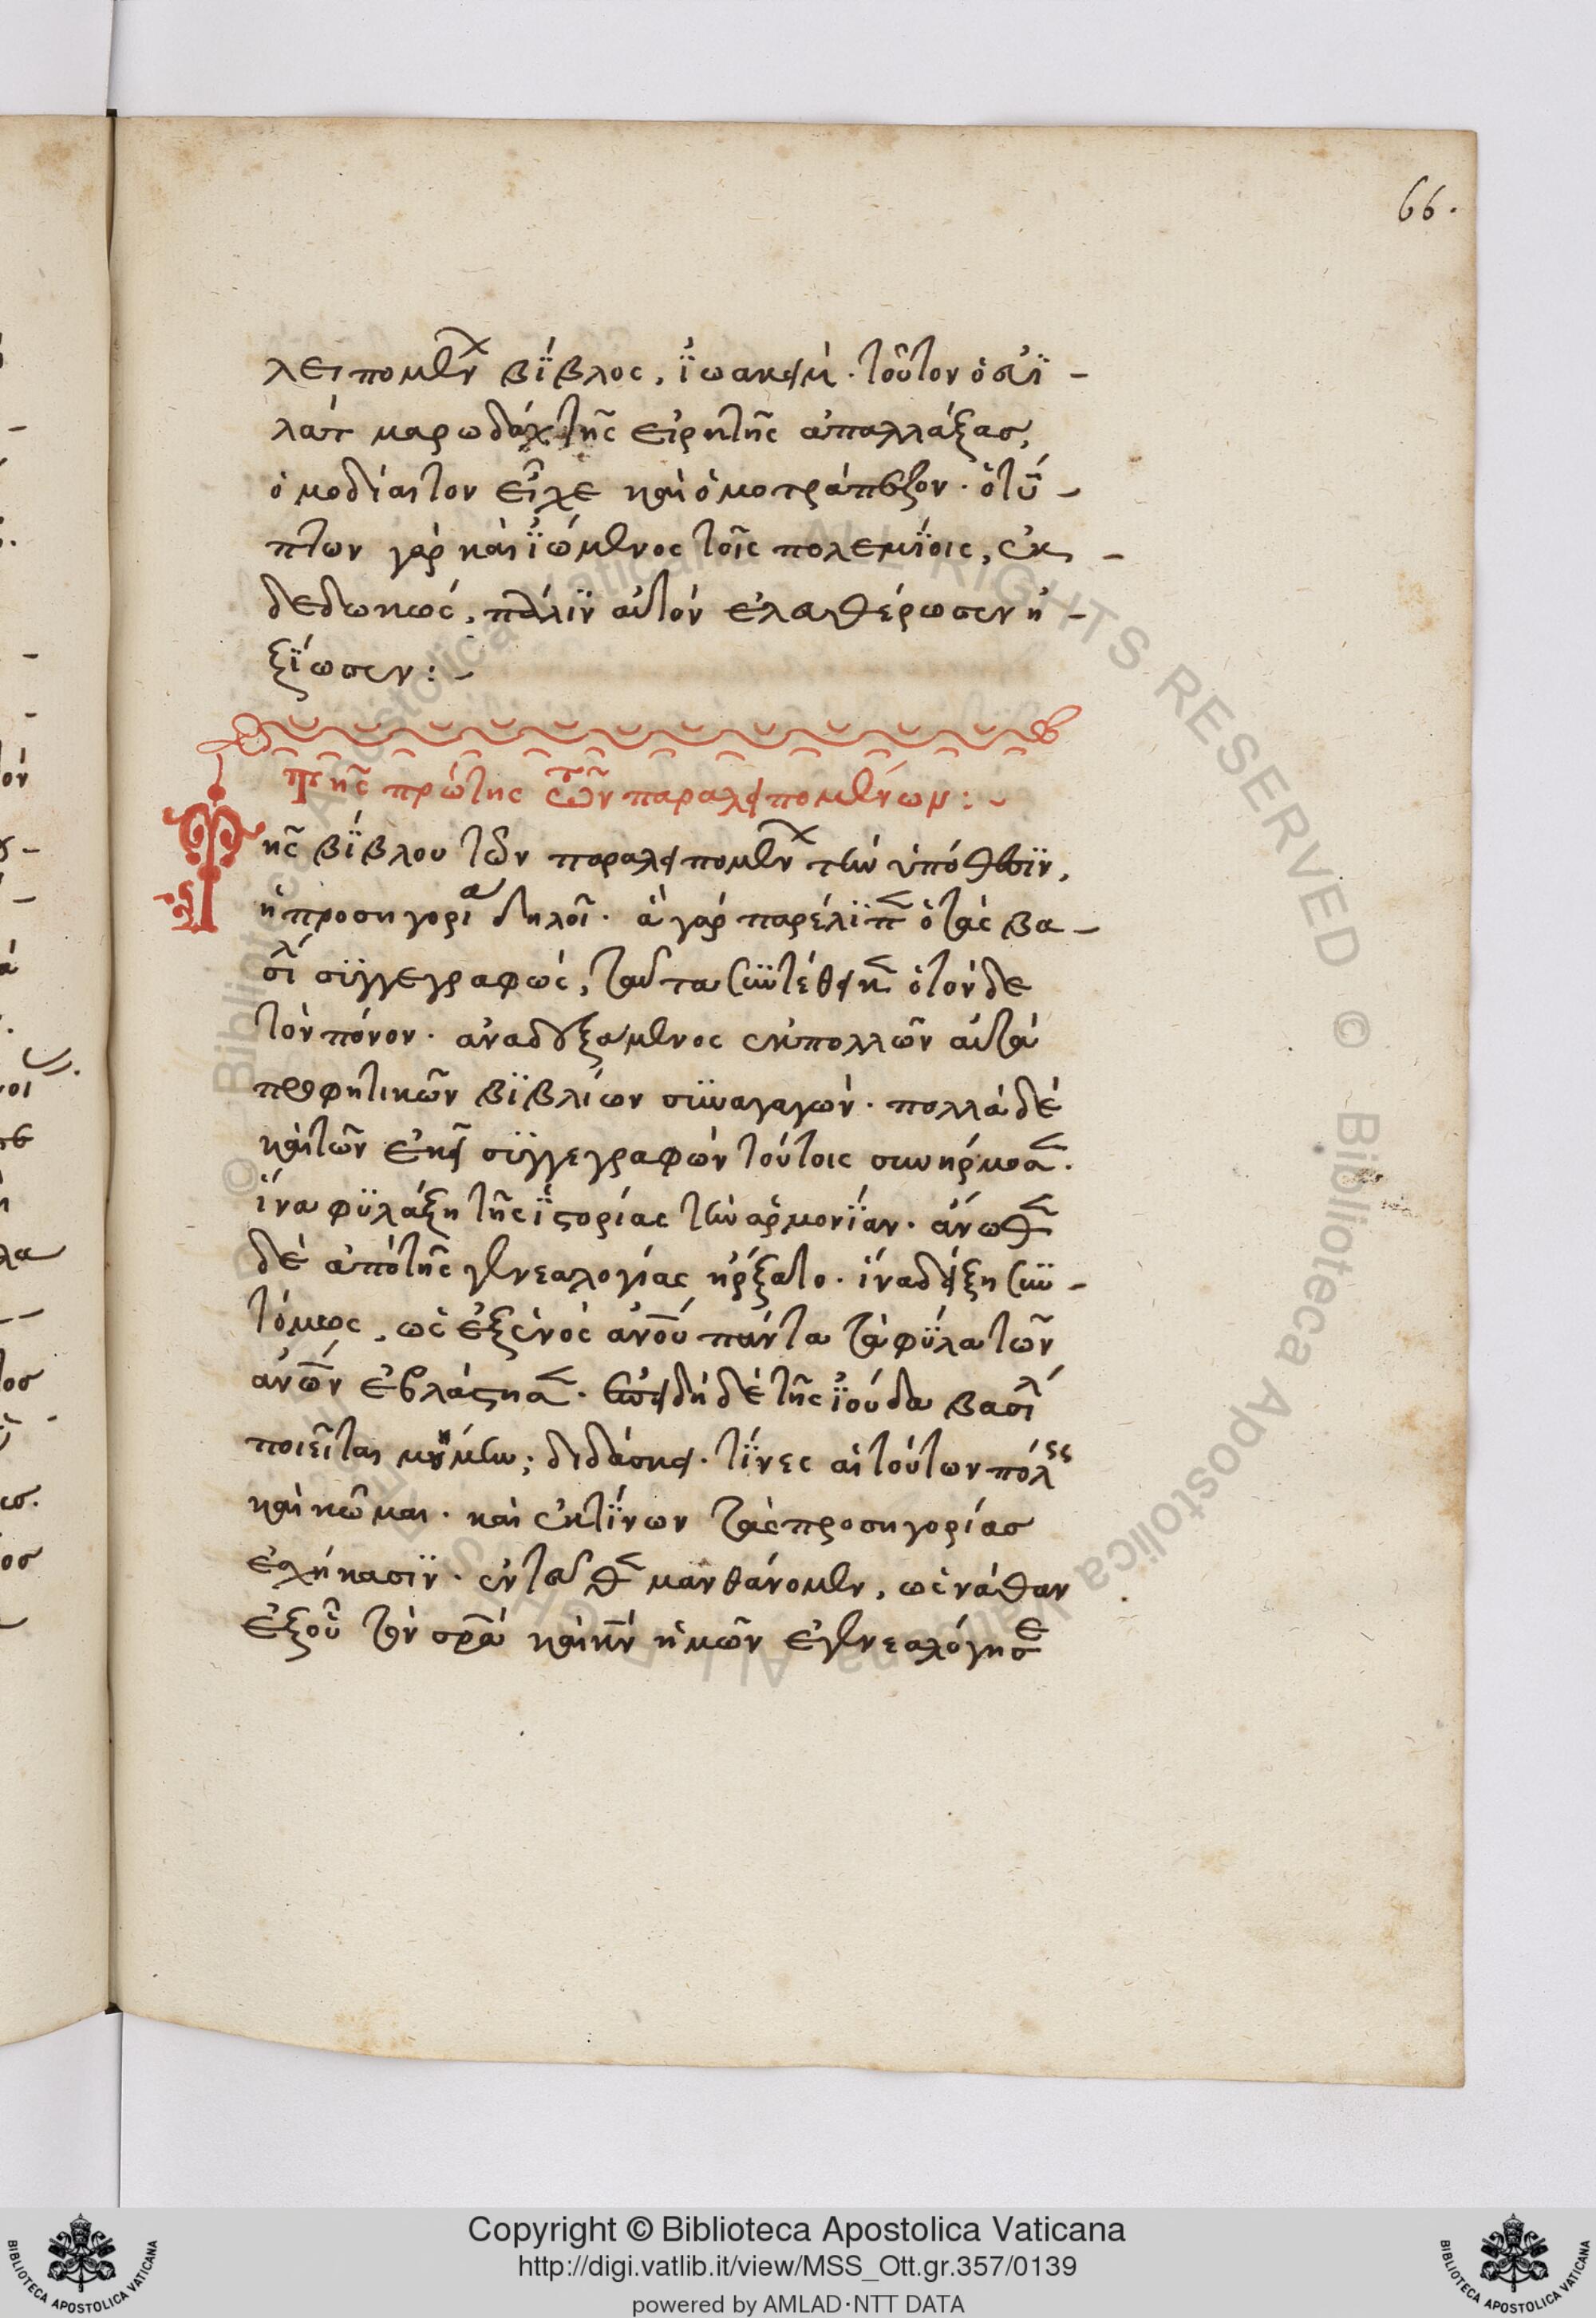 66.
λειπομένων βΐβλος, ϊωακεὶμ. τοῦτον ὁ αὐϊ-
λὰτ μαρωδὰχ τῆς εἱρκτῆς ἀπαλλάξας,
ὁμοδίαιτον εἶχε καὶ ὁμοτράπεζον. ὁ τύ-
πτων γὰρ καὶ ϊώμενος τοῖς πολεμΐοις, ἐκ-
δεδωκὼς, πάλιν αὐτὸν ἐλευθέρωσεν ἠ-
ξΐωσεν:-
Τῆς πρώτης τῶν παραλειπομένων:-
Τῆς βΐβλου τῶν παραλειπομένων τὴν ὑπόθεσιν,
ἡ προσηγορία δηλοῖ. ἃ γὰρ παρέλιπεν ὁ τὰς βα-
σιλ σϋγγεγραφὼς, ταῦτα συντέθεικεν ὁ τόνδε
τὸν πόνον. ἀναδεξάμενος ἐκ πολλῶν αὐτὰ
προφητικῶν βϊβλίων συναγαγών. πολλὰ δὲ
καὶ τῶν ἐκεῖ σϋγγεγραφῶν τούτοις συνήρμοσεν.
ἵνα φϋλάξη τῆς ϊστορίας τὴν ἁρμονΐαν. ἄνωθεν
δὲ ἀπὸ τῆς γενεαλογίας ἤρξατο. ἵνα δείξη συν-
τόμως, ὡς ἐξ ἑνὸς ἀνου πάντα τὰ φῦλα τῶν
ἀνων ἐβλάστησεν. ἐπειδὴ δὲ τῆς ϊούδα βασιλ
ποιεῖται μνήμην; διδάσκει. τΐνες αἱ τούτων πόλεις
καὶ κῶμαι. καὶ ἐκ τΐνων τὰς προσηγορίας
ἐσχήκασϊν. ἐνταῦθεν μανθάνομεν, ὡς νάθαν
ἐξ οὗ τὸν σρα καὶ κν ἡμῶν ἐγενεαλόγησε
Copyright © Biblioteca Apostolica Vaticana
http://digi.vatlib.it/view/MSS_Ott.gr.357/0139
powered by AMLAD·NTT DATA